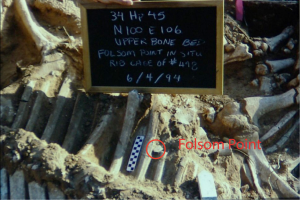 34 Hr 45
N100 E106
UPPER BONE BED
FOLSOM POINT IN SITU
RIB CAGE OF #498
6/4/94
Folsom Point